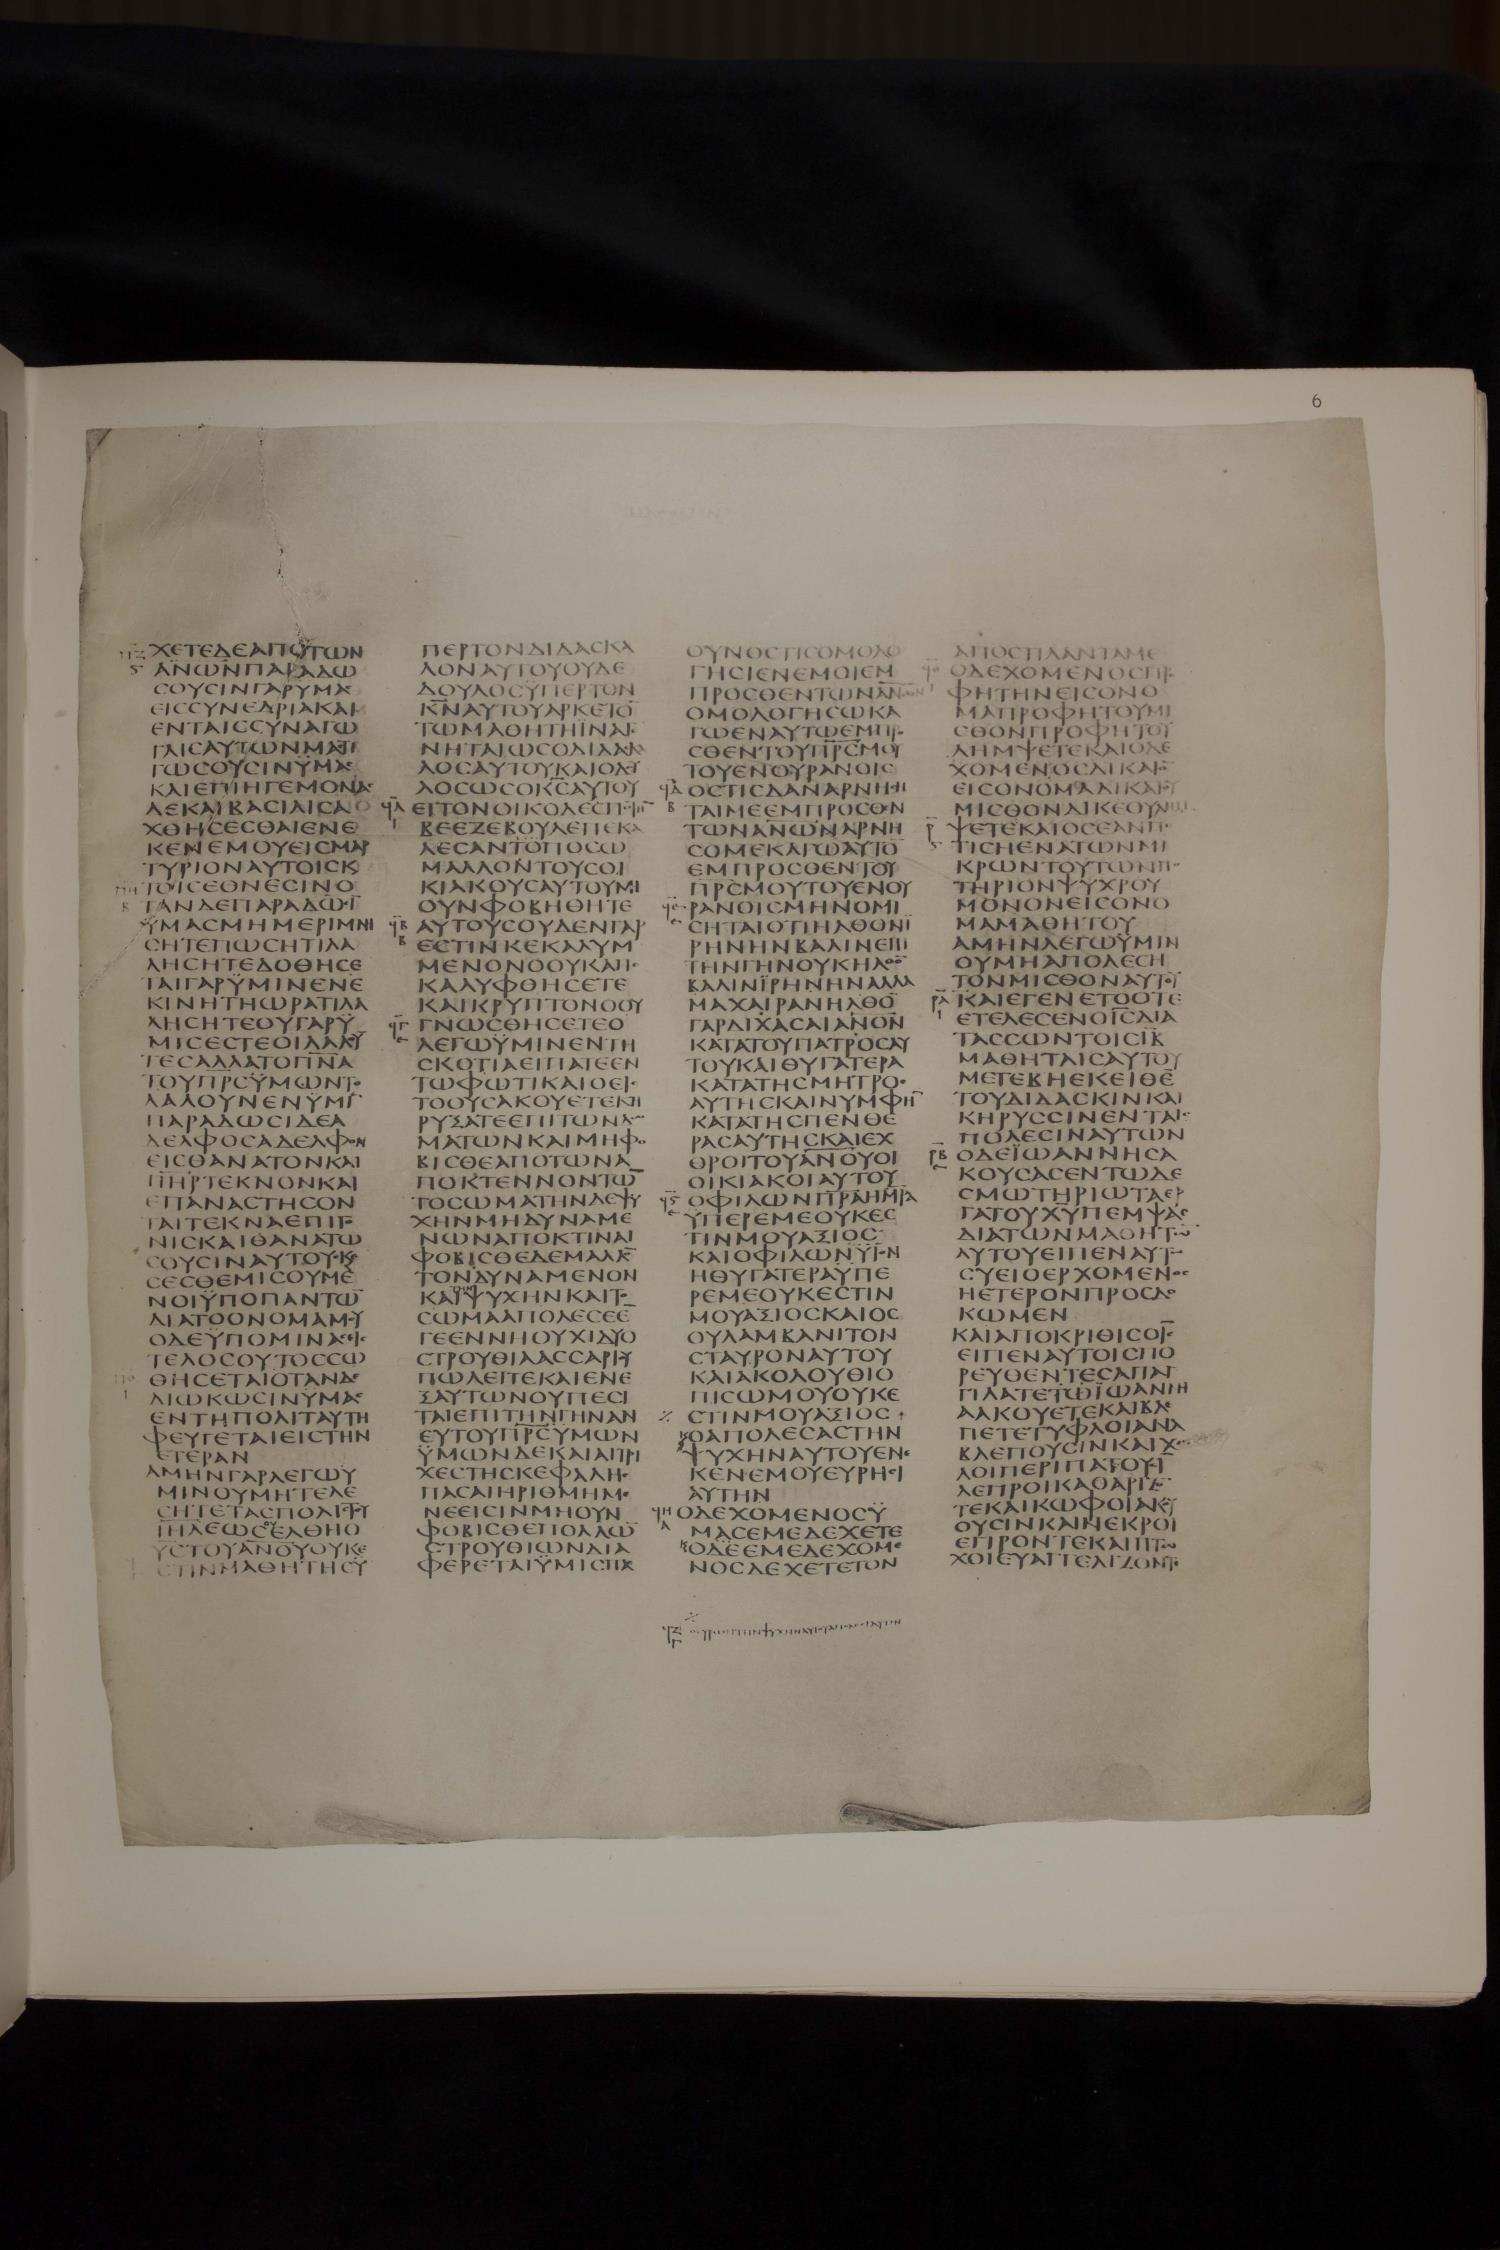 6
ΧΕΤΕΔΕΑΠΟΤΩΝ
ΑΝΩΝΠΑΡΑΔΩ
ΣΟΥΣΙΝΓΑΡΥΜΑΣ
ΕΙΣΣΥΝΕΔΡΙΑΚΑΙ
ΕΝΤΑΙΣΣΥΝΑΓΩ
ΓΑΙΣΑΥΤΩΝΜΑΣΤΙ
ΓΩΣΟΥΣΙΝΫΜΑΣ
ΚΑΙΕΠΙΗΓΕΜΟΝΑΣ
ΔΕΚΑΙΒΑΣΙΛΙΣΑ
ΧΘΗΣΕΣΘΑΙΕΝΕ
ΚΕΝΕΜΟΥΕΙΣΜΑΡ
ΤΥΡΙΟΝΑΥΤΟΙΣΚ
ΤΟΙΣΕΘΝΕΣΙΝΟ
ΤΑΝΔΕΠΑΡΑΔΩΣΙ
ΫΜΑΣΜΗΜΕΡΙΜΝΗ
ΣΗΤΕΠΩΣΗΤΙΛΑ
ΛΗΣΗΤΕΔΟΘΗΣΕ
ΤΑΙΓΑΡΫΜΙΝΕΝΕ
ΚΙΝΗΤΗΩΡΑΤΙΛΑ
ΛΗΣΗΤΕΟΥΓΑΡΫ
ΜΙΣΕΣΤΕΟΙΛΑΛΟΥ
ΤΕΣΑΛΛΑΤΟΠΝΑ
ΤΟΥΠΡΣΫΜΩΝΤΟ
ΛΑΛΟΥΝΕΝΫΜΙ
ΠΑΡΑΔΩΣΙΔΕΑ
ΔΕΛΦΟΣΑΔΕΛΦΟΝ
ΕΙΣΘΑΝΑΤΟΝΚΑΙ
ΠΗΡΤΕΚΝΟΝΚΑΙ
ΕΠΑΝΑΣΤΗΣΟΝ
ΤΑΙΤΕΚΝΑΕΠΙΓΟ
ΝΙΣΚΑΙΘΑΝΑΤΩ
ΣΟΥΣΙΝΑΥΤΟΥΣΚΕ
ΣΕΣΘΕΜΙΣΟΥΜΕ
ΝΟΙΫΠΟΠΑΝΤΩ
ΔΙΑΤΟΟΝΟΜΑΜΟΥ
ΟΔΕΫΠΟΜΙΝΑΣΕΙΣ
ΤΕΛΟΣΟΥΤΟΣΣΩ
ΘΗΣΕΤΑΙΟΤΑΝΔΕ
ΔΙΩΚΩΣΙΝΫΜΑΣ
ΕΝΤΗΠΟΛΙΤΑΥΤΗ
ΦΕΥΓΕΤΑΙΕΙΣΤΗΝ
ΕΤΕΡΑΝ
ΑΜΗΝΓΑΡΛΕΓΩΫ
ΜΙΝΟΥΜΗΤΕΛΕ
ΣΗΤΕΤΑΣΠΟΛΙΣΤΟΥ
ΙΗΛΕΩΣΕΛΘΗΟ
ΥΣΤΟΥΑΝΟΥΟΥΚΕ
ΣΤΙΝΜΑΘΗΤΗΣΫ
ΠΕΡΤΟΝΔΙΔΑΣΚΑ
ΛΟΝΑΥΤΟΥΟΥΔΕ
ΔΟΥΛΟΣΫΠΕΡΤΟΝ
ΚΝΑΥΤΟΥΑΡΚΕΤΟ
ΤΩΜΑΘΗΤΗΪΝΑΓΕ
ΝΗΤΑΙΩΣΟΔΙΔΑΣΚΑ
ΛΟΣΑΥΤΟΥΚΑΙΟΔΟΥ
ΛΟΣΩΣΟΚΣΑΥΤΟΥ
ΕΙΤΟΝΟΙΚΟΔΕΣΠΟΤΗ
ΒΕΕΖΕΒΟΥΛΕΠΕΚΑ
ΛΕΣΑΝΤΟΠΟΣΩ
ΜΑΛΛΟΝΤΟΥΣΟΙ
ΚΙΑΚΟΥΣΑΥΤΟΥΜΗ
ΟΥΝΦΟΒΗΘΗΤΕ
ΑΥΤΟΥΣΟΥΔΕΝΓΑΡ
ΕΣΤΙΝΚΕΚΑΛΥΜ
ΜΕΝΟΝΟΟΥΚΑΠΟ
ΚΑΛΥΦΘΗΣΕΤΕ
ΚΑΙΚΡΥΠΤΟΝΟΟΥ
ΓΝΩΣΘΗΣΕΤΕΟ
ΛΕΓΩΫΜΙΝΕΝΤΗ
ΣΚΟΤΙΑΕΙΠΑΤΕΕΝ
ΤΩΦΩΤΙΚΑΙΟΕΙΣ
ΤΟΟΥΣΑΚΟΥΕΤΕΚΗ
ΡΥΞΑΤΕΕΠΙΤΩΝΔΩ
ΜΑΤΩΝΚΑΙΜΗΦΟ
ΒΙΣΘΕΑΠΟΤΩΝΑ
ΠΟΚΤΕΝΝΟΝΤΩ
ΤΟΣΩΜΑΤΗΝΔΕΨΥ
ΧΗΝΜΗΔΥΝΑΜΕ
ΝΩΝΑΠΟΚΤΙΝΑΙ
ΦΟΒΙΣΘΕΔΕΜΑΛΛΟ
ΤΟΝΔΥΝΑΜΕΝΟΝ
ΚΑΙΨΥΧΗΝΚΑΙΤΟ
ΣΩΜΑΑΠΟΛΕΣΕΕ
ΓΕΕΝΝΗΟΥΧΙΔΥΟ
ΣΤΡΟΥΘΙΑΑΣΣΑΡΙΟΥ
ΠΩΛΕΙΤΕΚΑΙΕΝΕ
ΞΑΥΤΩΝΟΥΠΕΣΙ
ΤΑΙΕΠΙΤΗΝΓΗΝΑΝ
ΕΥΤΟΥΠΡΣΫΜΩΝ
ΫΜΩΝΔΕΚΑΙΑΙΤΡΙ
ΧΕΣΤΗΣΚΕΦΑΛΗΣ
ΠΑΣΑΙΗΡΙΘΜΗΜΕ
ΝΕΕΙΣΙΝΜΗΟΥΝ
ΦΟΒΙΣΘΕΠΟΛΛΩ
ΣΤΡΟΥΘΙΩΝΔΙΑ
ΦΕΡΕΤΑΙΫΜΙΣΠΑΣ
ΟΥΝΟΣΤΙΣΟΜΟΛΟ
ΓΗΣΙΕΝΕΜΟΙΕΜ
ΠΡΟΣΘΕΝΤΩΝΑΝΩΝ
ΟΜΟΛΟΓΗΣΩΚΑ
ΓΩΕΝΑΥΤΩΕΜΠΡΟ
ΣΘΕΝΤΟΥΠΡΣΜΟΥ
ΤΟΥΕΝΟΥΡΑΝΟΙΣ
ΟΣΤΙΣΔΑΝΑΡΝΗΣΗ
ΤΑΙΜΕΕΜΠΡΟΣΘΕΝ
ΤΩΝΑΝΩΝΑΡΝΗ
ΣΟΜΕΚΑΓΩΑΥΤΟ
ΕΜΠΡΟΣΘΕΝΤΟΥ
ΠΡΣΜΟΥΤΟΥΕΝΟΥ
ΡΑΝΟΙΣΜΗΝΟΜΙ
ΣΗΤΑΙΟΤΙΗΛΘΟΝΪ
ΡΗΝΗΝΒΑΛΙΝΕΠΙ
ΤΗΝΓΗΝΟΥΚΗΛΘΟ
ΒΑΛΙΝΪΡΗΝΗΝΑΛΛΑ
ΜΑΧΑΙΡΑΝΗΛΘΟ
ΓΑΡΔΙΧΑΣΑΙΑΝΟΝ
ΚΑΤΑΤΟΥΠΑΤΡΟΣΑΥ
ΤΟΥΚΑΙΘΥΓΑΤΕΡΑ
ΚΑΤΑΤΗΣΜΗΤΡΟΣ
ΑΥΤΗΣΚΑΙΝΥΜΦΗ
ΚΑΤΑΤΗΣΠΕΝΘΕ
ΡΑΣΑΥΤΗΣΚΑΙΕΧ
ΘΡΟΙΤΟΥΑΝΟΥΟΙ
ΟΙΚΙΑΚΟΙΑΥΤΟΥ
ΟΦΙΛΩΝΠΡΑΗΜΡΑ
ΫΠΕΡΕΜΕΟΥΚΕΣ
ΤΙΝΜΟΥΑΞΙΟΣ
ΚΑΙΟΦΙΛΩΝΫΙΟΝ
ΗΘΥΓΑΤΕΡΑΫΠΕ
ΡΕΜΕΟΥΚΕΣΤΙΝ
ΜΟΥΑΞΙΟΣΚΑΙΟΣ
ΟΥΛΑΜΒΑΝΙΤΟΝ
ΣΤΑΥΡΟΝΑΥΤΟΥ
ΚΑΙΑΚΟΛΟΥΘΙΟ
ΠΙΣΩΜΟΥΟΥΚΕ
ΣΤΙΝΜΟΥΑΞΙΟΣ
ΟΑΠΟΛΕΣΑΣΤΗΝ
ΨΥΧΗΝΑΥΤΟΥΕΝΕ
ΚΕΝΕΜΟΥΕΥΡΗΣΙ
ΑΥΤΗΝ
ΟΔΕΧΟΜΕΝΟΣΫ
ΜΑΣΕΜΕΔΕΧΕΤΕ
ΟΔΕΕΜΕΔΕΧΟΜΕ
ΝΟΣΔΕΧΕΤΕΤΟΝ
ΑΠΟΣΤΙΛΑΝΤΑΜΕ
ΟΔΕΧΟΜΕΝΟΣΠΡΟ
ΦΗΤΗΝΕΙΣΟΝΟ
ΜΑΠΡΟΦΗΤΟΥΜΙ
ΣΘΟΝΠΡΟΦΗΤΟΥ
ΛΗΜΨΕΤΕΚΑΙΟΔΕ
ΧΟΜΕΝΟΣΔΙΚΑΙΟ
ΕΙΣΟΝΟΜΑΔΙΚΑΙΟΥ
ΜΙΣΘΟΝΔΙΚΕΟΥΛΗΜ
ΨΕΤΕΚΑΙΟΣΕΑΝΠΟ
ΤΙΣΗΕΝΑΤΩΝΜΙ
ΚΡΩΝΤΟΥΤΩΝΠΟ
ΤΗΡΙΟΝΨΥΧΡΟΥ
ΜΟΝΟΝΕΙΣΟΝΟ
ΜΑΜΑΘΗΤΟΥ
ΑΜΗΝΛΕΓΩΫΜΙΝ
ΟΥΜΗΑΠΟΛΕΣΗ
ΤΟΝΜΙΣΘΟΝΑΥΤΟΥ
ΚΑΙΕΓΕΝΕΤΟΟΤΕ
ΕΤΕΛΕΣΕΝΟΙΣΔΙΑ
ΤΑΣΣΩΝΤΟΙΣΙΒ
ΜΑΘΗΤΑΙΣΑΥΤΟΥ
ΜΕΤΕΒΗΕΚΕΙΘΕ
ΤΟΥΔΙΔΑΣΚΙΝΚΑΙ
ΚΗΡΥΣΣΙΝΕΝΤΑΙΣ
ΠΟΛΕΣΙΝΑΥΤΩΝ
ΟΔΕΪΩΑΝΝΗΣΑ
ΚΟΥΣΑΣΕΝΤΩΔΕ
ΣΜΩΤΗΡΙΩΤΑΕΡ
ΓΑΤΟΥΧΥΠΕΜΨΑΣ
ΔΙΑΤΩΝΜΑΘΗΤΩ
ΑΥΤΟΥΕΙΠΕΝΑΥΤΩ
ΣΥΕΙΟΕΡΧΟΜΕΝΟΣ
ΗΕΤΕΡΟΝΠΡΟΣΔΟ
ΚΩΜΕΝ
ΚΑΙΑΠΟΚΡΙΘΙΣΟΙΣ
ΕΙΠΕΝΑΥΤΟΙΣΠΟ
ΡΕΥΘΕΝΤΕΣΑΠΑΓ
ΓΙΛΑΤΕΤΩΪΩΑΝΝΗ
ΑΑΚΟΥΕΤΕΚΑΙΒΛΕ
ΠΕΤΕΤΥΦΛΟΙΑΝΑ
ΒΛΕΠΟΥΣΙΝΚΑΙΧΩ
ΛΟΙΠΕΡΙΠΑΤΟΥΣΙ
ΛΕΠΡΟΙΚΑΘΑΡΙΖΟ
ΤΕΚΑΙΚΩΦΟΙΑΚΟΥ
ΟΥΣΙΝΚΑΙΝΕΚΡΟΙ
ΕΓΙΡΟΝΤΕΚΑΙΠΤΩ
ΧΟΙΕΥΑΓΓΕΛΙΖΟΝΤΕ